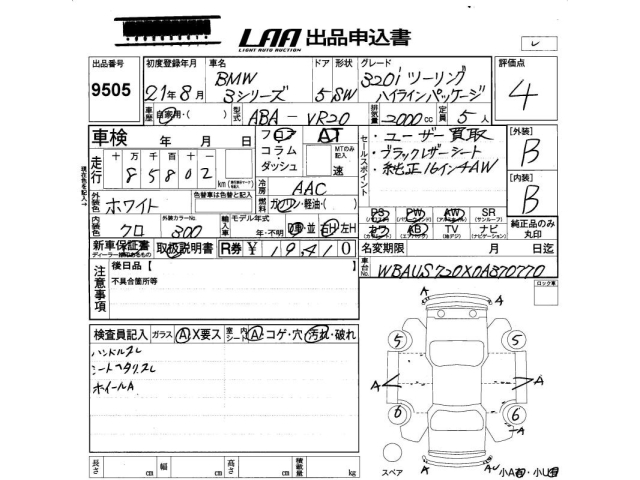 LAA 出品申込書
LIGHT AUTO AUCTION
出品番号 初度登録年月 車名 ドア 形状 グレード 評価点
9505 21年8月 BMW 3シリーズ 5 SW 320iツーリング ハイラインパッケージ 4
車歴 自家用・( ) 型式 ABA-VR20 排気量 2000cc 定員 5人
車検 年 月 日 フロア AT セールスポイント ・ユーザー買取 [外装]
コラム MTのみ記入 ・ブラックレザーシート B
走行 十万千百十一 ダッシュ 速 ・純正16インチAW
85802 km 冷房 AAC [内装]
外装色 ホワイト 色替車は色替と記入 燃料 ガソリン・軽油・( ) B
PS PW AW SR
(サンルーフ)
内装色 クロ 外装カラーNo. 300 輸入車 モデル年式 年・不明 並 右H 左H カワ AB TV ナビ 純正品のみ丸印
(エアバッグ) (ナビゲーション)
新車保証書 取扱説明書 R券 ¥ 19410 名変期限 月 日迄
ディーラー
車台No. WBAUS720X0A870770
注意事項 後日品【 ロック車
不具合箇所等
検査員記入 ガラス A X要ス 室内シート A コゲ・穴 汚れ・破れ
ハンドルスレ
シートヘタリスレ
ホイールA
A A
5 5
A A
6 6
A
A AU
スペア 小A 小U
長さ cm 幅 cm 高さ cm 積載量 kg